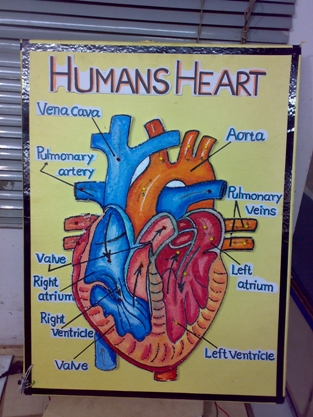 HUMANS HEART
Vena Cava
Aorta
Pulmonary
artery
Pulmonary
Veins
Valve
Right
atrium
Left
atrium
Right
Ventricle
Valve
Left Ventricle